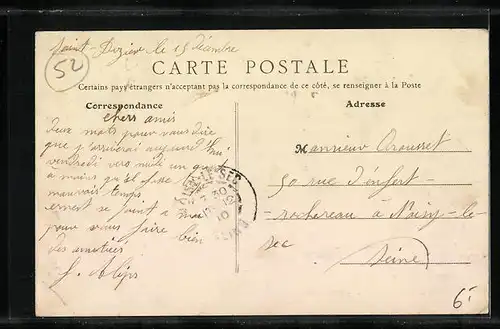 Saint-Dizier le 15 décembre
52
CARTE POSTALE
Certains pays étrangers n'acceptant pas la correspondance de ce côté, se renseigner à la Poste
Correspondance
Adresse
chers amis
deux mots pour vous dire
que j'arriverai aujourd'hui
vendredi vers midi un quart
a moins qu'el fasse
mauvais temps
ernest se joint a moi
pour vous faire bien
des amitiées
Monsieur Grousset
50 rue d'enfert
rochereau à Noisy-le
sec
Seine
NOISY-LE-SEC
10
6-